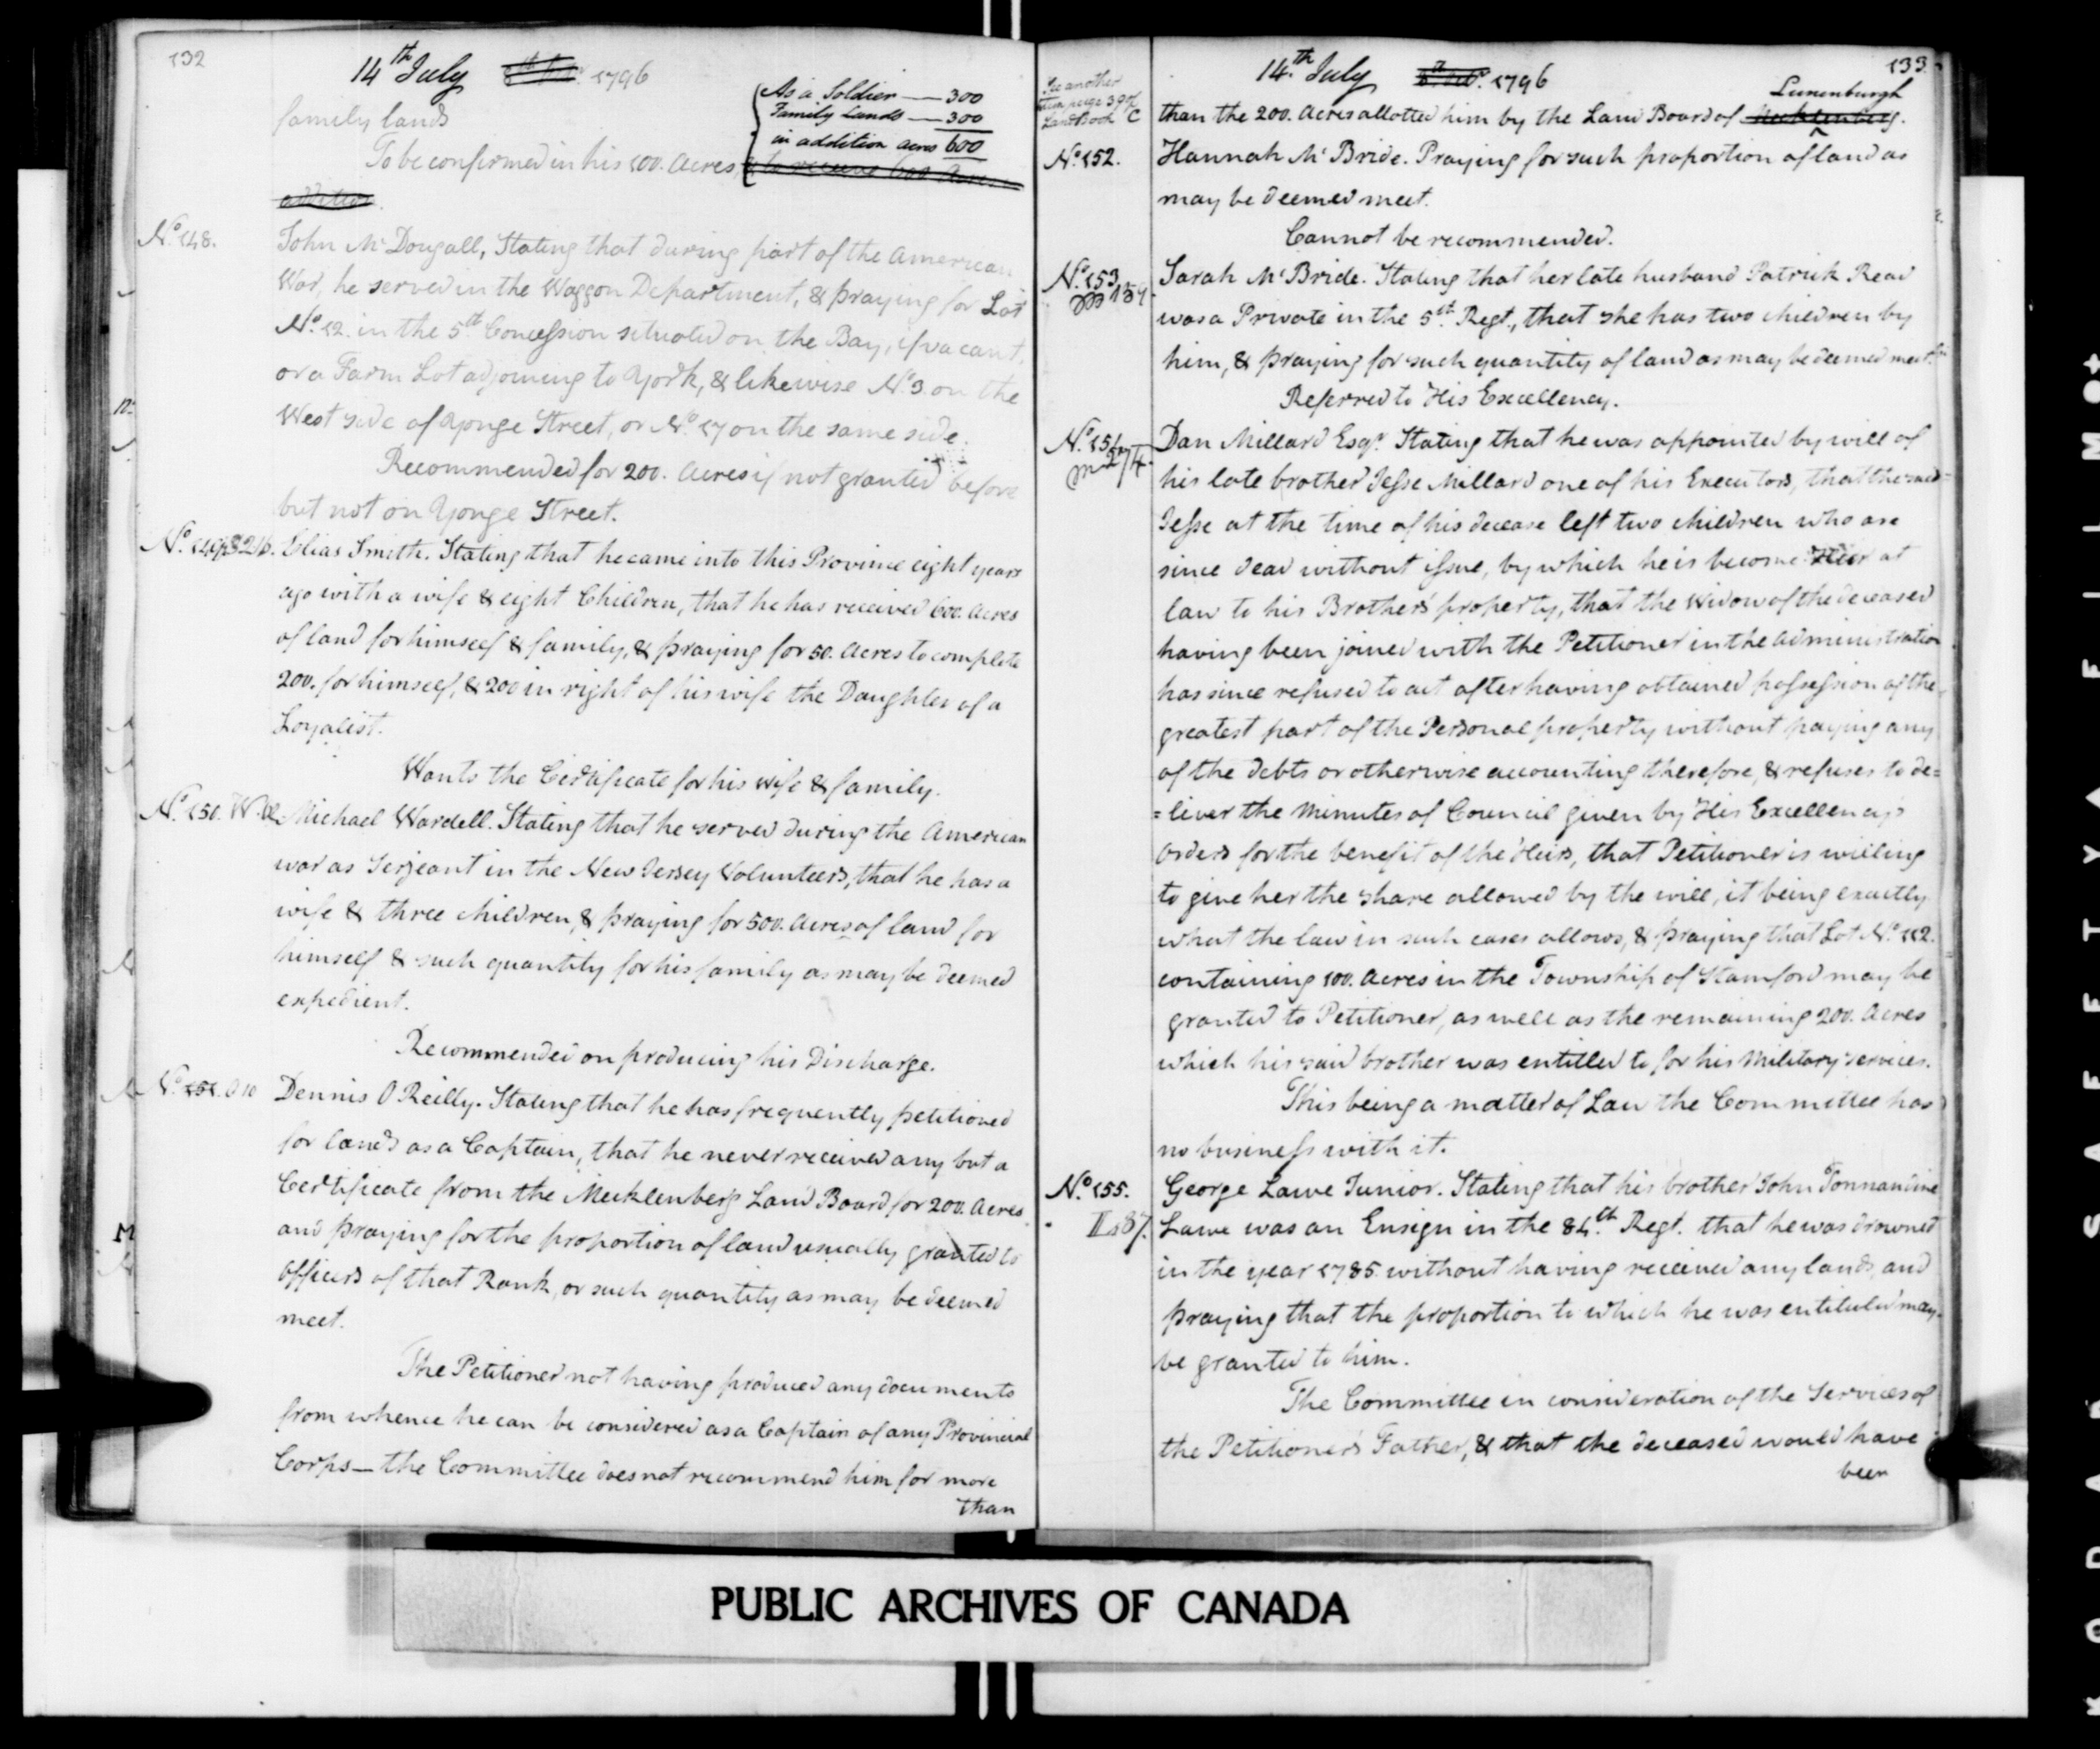 132
14th July 1796
As a Soldier — 300
Family Lands — 300
in addition acres 600
family lands
To be confirmed in his 100. Acres, to receive 600 Acres in
addition.
No. 148.
John McDougall, Stating that during part of the American
War, he served in the Waggon Department, & praying for Lot
No. 12. in the 5th Concession situated on the Bay, if vacant,
or a Farm Lot adjoining to York, & likewise No. 3. on the
West side of Yonge Street, or No. 17 on the same side.
Recommended for 200. Acres if not granted before
but not on Yonge Street.
No. 149
Elias Smith. Stating that he came into this Province eight years
ago with a wife & eight Children, that he has received 600. Acres
of land for himself & family, & praying for 50. Acres to complete
200. for himself, & 200 in right of his wife the Daughter of a
Loyalist.
Wants the Certificate for his wife & family.
No. 150.
Michael Wardell. Stating that he served during the American
war as Serjeant in the New Jersey Volunteers, that he has a
wife & three children, & praying for 500. Acres of land for
himself & such quantity for his family as may be deemed
expedient.
Recommended on producing his Discharge.
No. 151. O 10
Dennis O Reilly. Stating that he has frequently petitioned
for lands as a Captain, that he never received any but a
Certificate from the Mecklenberg Land Board for 200. Acres
and praying for the proportion of land usually granted to
Officers of that Rank, or such quantity as may be deemed
meet.
The Petitioner not having produced any documents
from whence he can be considered as a Captain of any Provincial
Corps — the Committee does not recommend him for more
than
M
133
14th July 1796
See another
page 390
Land Book C
Lunenburgh
than the 200. Acres allotted him by the Land Board of Mecklenberg.
No. 152.
Hannah McBride. Praying for such proportion of land as
may be deemed meet.
Cannot be recommended.
No. 153
Sarah McBride. Stating that her late husband Patrick Read
was a Private in the 5th Regt., that she has two children by
him, & praying for such quantity of land as may be deemed meet.
Referred to His Excellency.
No. 154
Dan Millard Esqr. Stating that he was appointed by will of
his late brother Jesse Millard one of his Executors, that the said
Jesse at the time of his decease left two children who are
since dead without issue, by which he is become Heir at
law to his Brother's property, that the Widow of the deceased
having been joined with the Petitioner in the administration
has since refused to act after having obtained possession of the
greatest part of the Personal property without paying any
of the debts or otherwise accounting therefore, & refuses to de=
=liver the Minutes of Council given by His Excellency's
Orders for the benefit of the Heirs, that Petitioner is willing
to give her the share allowed by the will, it being exactly
what the law in such cases allows, & praying that Lot No. 112.
containing 100. Acres in the Township of Stamford may be
granted to Petitioner, as well as the remaining 200. Acres
which his said brother was entitled to for his Military services.
This being a matter of Law the Committee has
no business with it.
No. 155.
L 87.
George Lawe Junior. Stating that his brother John Tonnancine
Lawe was an Ensign in the 84th Regt. that he was drowned
in the year 1785 without having received any lands, and
praying that the proportion to which he was entituled may
be granted to him.
The Committee in consideration of the Services of
the Petitioner's Father, & that the deceased would have
been
PUBLIC ARCHIVES OF CANADA
SAFETY FILM